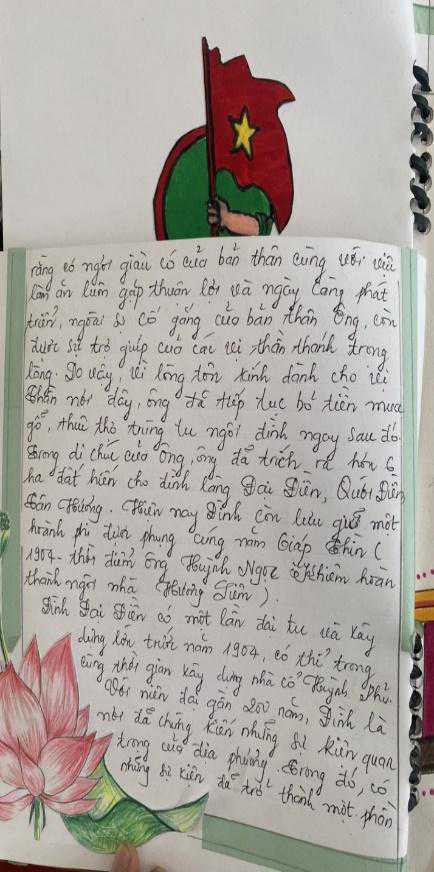 rằng có ngơi giàu có của bản thân cũng với việc
làm ăn luôn gặp thuận lợi và ngày càng phát
triển, ngoài sự cố gắng của bản thân Ông, còn
được sự trợ giúp của các vị thần thánh trong
làng. Do vậy, với lòng tôn kính dành cho vị
thần nơi đây, ông đã tiếp tục bỏ tiền mua
gỗ, thuê thợ trùng tu ngôi đình ngay sau đó.
Trong di chúc của Ông, ông đã trích ra hơn 6
ha đất hiến cho đình làng Đại Điền, Quới Điền
Tân Hương. Hiện nay Đình còn lưu giữ một
hoành phi được phụng cúng năm Giáp Thìn (
1904 - thời điểm ông Huỳnh Ngọc Khiêm hoàn
thành ngôi nhà Hương Liêm).
Đình Đại Điền có một lần đại tu và xây
dựng lớn trước năm 1904, có thể trong
cùng thời gian xây dựng nhà cổ Huỳnh Phủ.
Với niên đại gần 200 năm, Đình là
nơi đã chứng kiến những sự kiện quan
trọng của địa phương. Trong đó, có
những sự kiện đã trở thành một phần